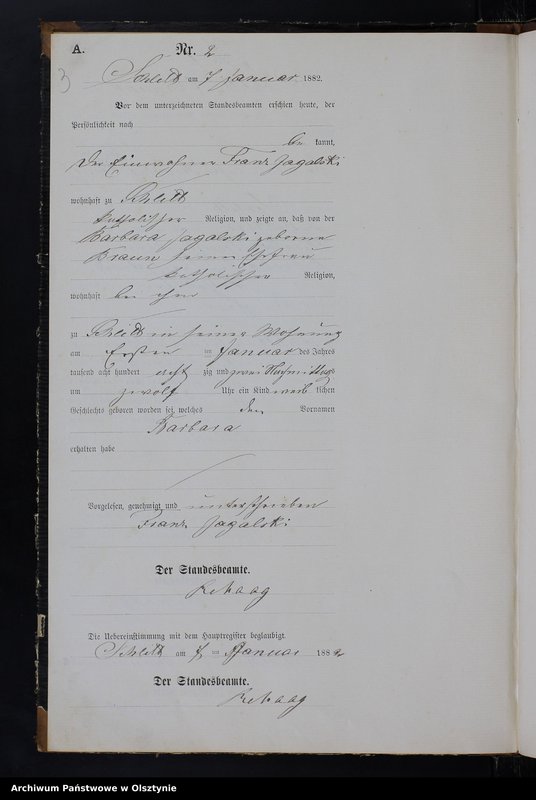 A. Nr. 2
3
Schlitt am 7 Januar 1882.
Vor dem unterzeichneten Standesbeamten erschien heute, der
Persönlichkeit nach
be kannt,
der Einwohner Franz Jagalski
wohnhaft zu Schlitt
katholischer Religion, und zeigte an, daß von der
Barbara Jagalski geborene
Braun seiner Ehefrau
katholischer Religion,
wohnhaft bei ihm
zu Schlitt in seiner Wohnung
am Ersten im Januar des Jahres
tausend acht hundert acht zig und zwei Nachmittags
um zwölf Uhr ein Kind weib lichen
Geschlechts geboren worden sei, welches den Vornamen
Barbara
erhalten habe
Vorgelesen, genehmigt und unterschrieben
Franz Jagalski
Der Standesbeamte.
Rehaag
Die Uebereinstimmung mit dem Hauptregister beglaubigt.
Schlitt am 7 im Januar 1882
Der Standesbeamte.
Rehaag
Archiwum Państwowe w Olsztynie